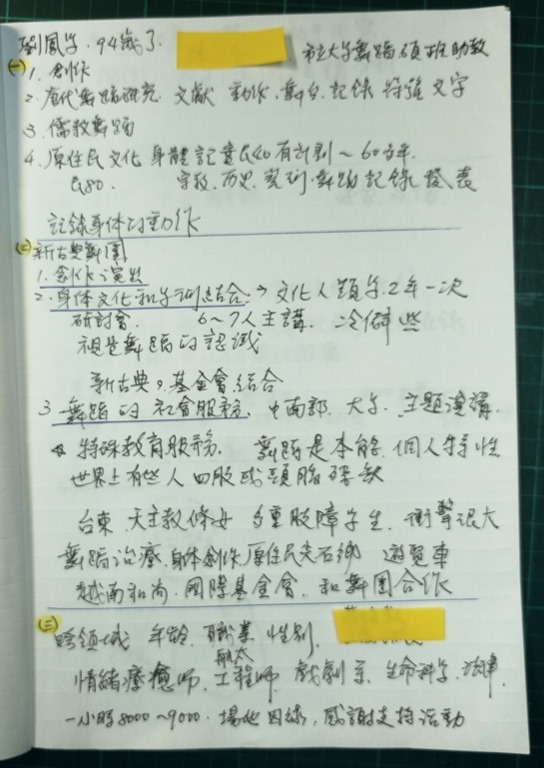 劉鳳学．94歲了 市立大學舞蹈碩班助教
(一) 1. 創作
2. 唐代舞蹈研究 文獻 動作．舞台．記錄 符號 文字
3. 儒教舞蹈
4. 原住民文化 身體記憶 民40有計劃～60多年
民80． 歷史 舞蹈記錄發表
記錄身体的動作
(二) 新古典舞團
1. 創作．演出
2. 身体文化 結合→文化人類学．2年一次
研討會． 6～7人主講． 冷僻些
祖先舞蹈的認識
新古典 基金會結合
3 舞蹈的社會服務． 中南部．大学．主題演講．
特殊教育服務． 舞蹈是本能．個人特性
世界上有些人四肢或頭腦殘缺
台東．天主教修女 多重肢障学生．衝擊很大
舞蹈治療．身体創作 原住民 鄉 遊覽車
越南和尚．國際基金會．和舞團合作
(三)
跨領域 年齡．職業 性別．
航太
情緒療癒師．工程師．戲劇系．生命科学．法律．
一小時8000～9000．場地 ，感謝支持活動